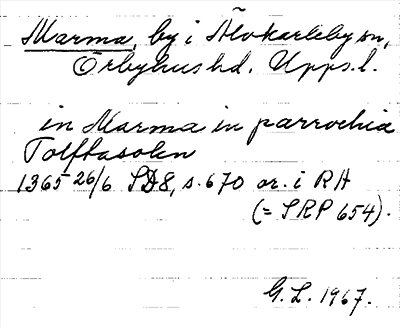 Marma, by i Älvkarleby sn,
Örbyhus hd. Upps. l.
in Marma in parrochia
Tolftasokn
1365 26/6 SD8, s. 670 or. i RA
(= SRP 654).
G. L. 1967.